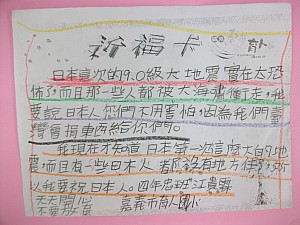 祈福卡
日本這次的9.0級大地震實在太恐
怖了,而且那一些人都被大海嘯衝走,我
要說日本人您們不用害怕,因為我們臺
灣會捐東西給你們。
我現在才知道日本第一次這麼大的地
震,而且有一些日本人都沒有地方住了,所
以我要祝日本人。四年忠班江貴
天天開心
嘉義市 人國小